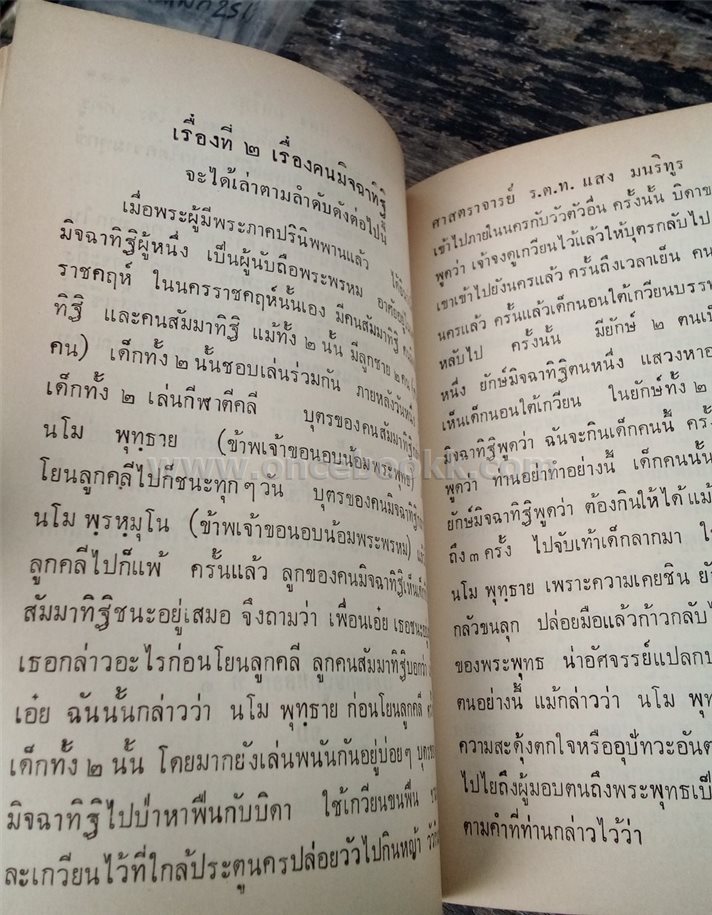 เรื่องที่ ๒ เรื่องคนมิจฉาทิฐิ
จะได้เล่าตามลำดับดังต่อไปนี้
เมื่อพระผู้มีพระภาคปรินิพพานแล้ว
มิจฉาทิฐิผู้หนึ่ง เป็นผู้นับถือพระพรหม
ราชคฤห์ ในนครราชคฤห์นั้นเอง มีคนสัมมาทิฐิ
ทิฐิ และคนสัมมาทิฐิ แม้ทั้ง ๒ นั้น มีลูกชาย ๒ คน
คน) เด็กทั้ง ๒ นั้นชอบเล่นร่วมกัน ภายหลังวันหนึ่ง
เด็กทั้ง ๒ เล่นกีฬาตีคลี บุตรของคนสัมมาทิฐิ
นโม พุทฺธาย (ข้าพเจ้าขอนอบน้อมพระพุทธ)
โยนลูกคลีไปก็ชนะทุกๆวัน บุตรของคนมิจฉาทิฐิ
นโม พฺรหฺมุโน (ข้าพเจ้าขอนอบน้อมพระพรหม)
ลูกคลีไปก็แพ้ ครั้นแล้ว ลูกของคนมิจฉาทิฐิเห็น
สัมมาทิฐิชนะอยู่เสมอ จึงถามว่า เพื่อนเอ๋ย เธอชนะ
เธอกล่าวอะไรก่อนโยนลูกคลี ลูกคนสัมมาทิฐิบอกว่า
เอ๋ย ฉันนั้นกล่าวว่า นโม พุทฺธาย ก่อนโยนลูกคลี
เด็กทั้ง ๒ นั้น โดยมากยังเล่นพนันกันอยู่บ่อยๆ
มิจฉาทิฐิไปป่าหาฟืนกับบิดา ใช้เกวียนขนฟืน
ละเกวียนไว้ที่ใกล้ประตูนครปล่อยวัวไปกินหญ้า
ศาสตราจารย์ ร.ต.ท. แสง มนวิทูร
เข้าไปภายในนครกับวัวตัวอื่น ครั้งนั้น บิดาข
พูดว่า เจ้าจงดูเกวียนไว้แล้วให้บุตรกลับไป
เขาเข้าไปยังนครแล้ว ครั้นถึงเวลาเย็น คน
นครแล้ว ครั้นแล้วเด็กนอนใต้เกวียนบรรท
หลับไป ครั้งนั้น มียักษ์ ๒ ตนเป็
หนึ่ง ยักษ์มิจฉาทิฐิตนหนึ่ง แสวงหาอ
เห็นเด็กนอนใต้เกวียน ในยักษ์ทั้ง ๒
มิจฉาทิฐิพูดว่า ฉันจะกินเด็กคนนี้ ครั้
พูดว่า ท่านอย่าทำอย่างนี้ เด็กคนนั้น
ยักษ์มิจฉาทิฐิพูดว่า ต้องกินให้ได้ แม้
ถึง ๓ ครั้ง ไปจับเท้าเด็กลากมา ใ
นโม พุทฺธาย เพราะความเคยชิน ยั
กลัวขนลุก ปล่อยมือแล้วก้าวกลับไ
ของพระพุทธ น่าอัศจรรย์แปลกป
ตนอย่างนี้ แม้กล่าวว่า นโม พุทฺ
ความสะดุ้งตกใจหรืออุปัทวะอันต
ไปไยถึงผู้มอบตนถึงพระพุทธเป็
ตามคำที่ท่านกล่าวไว้ว่า
www.oncebookk.com